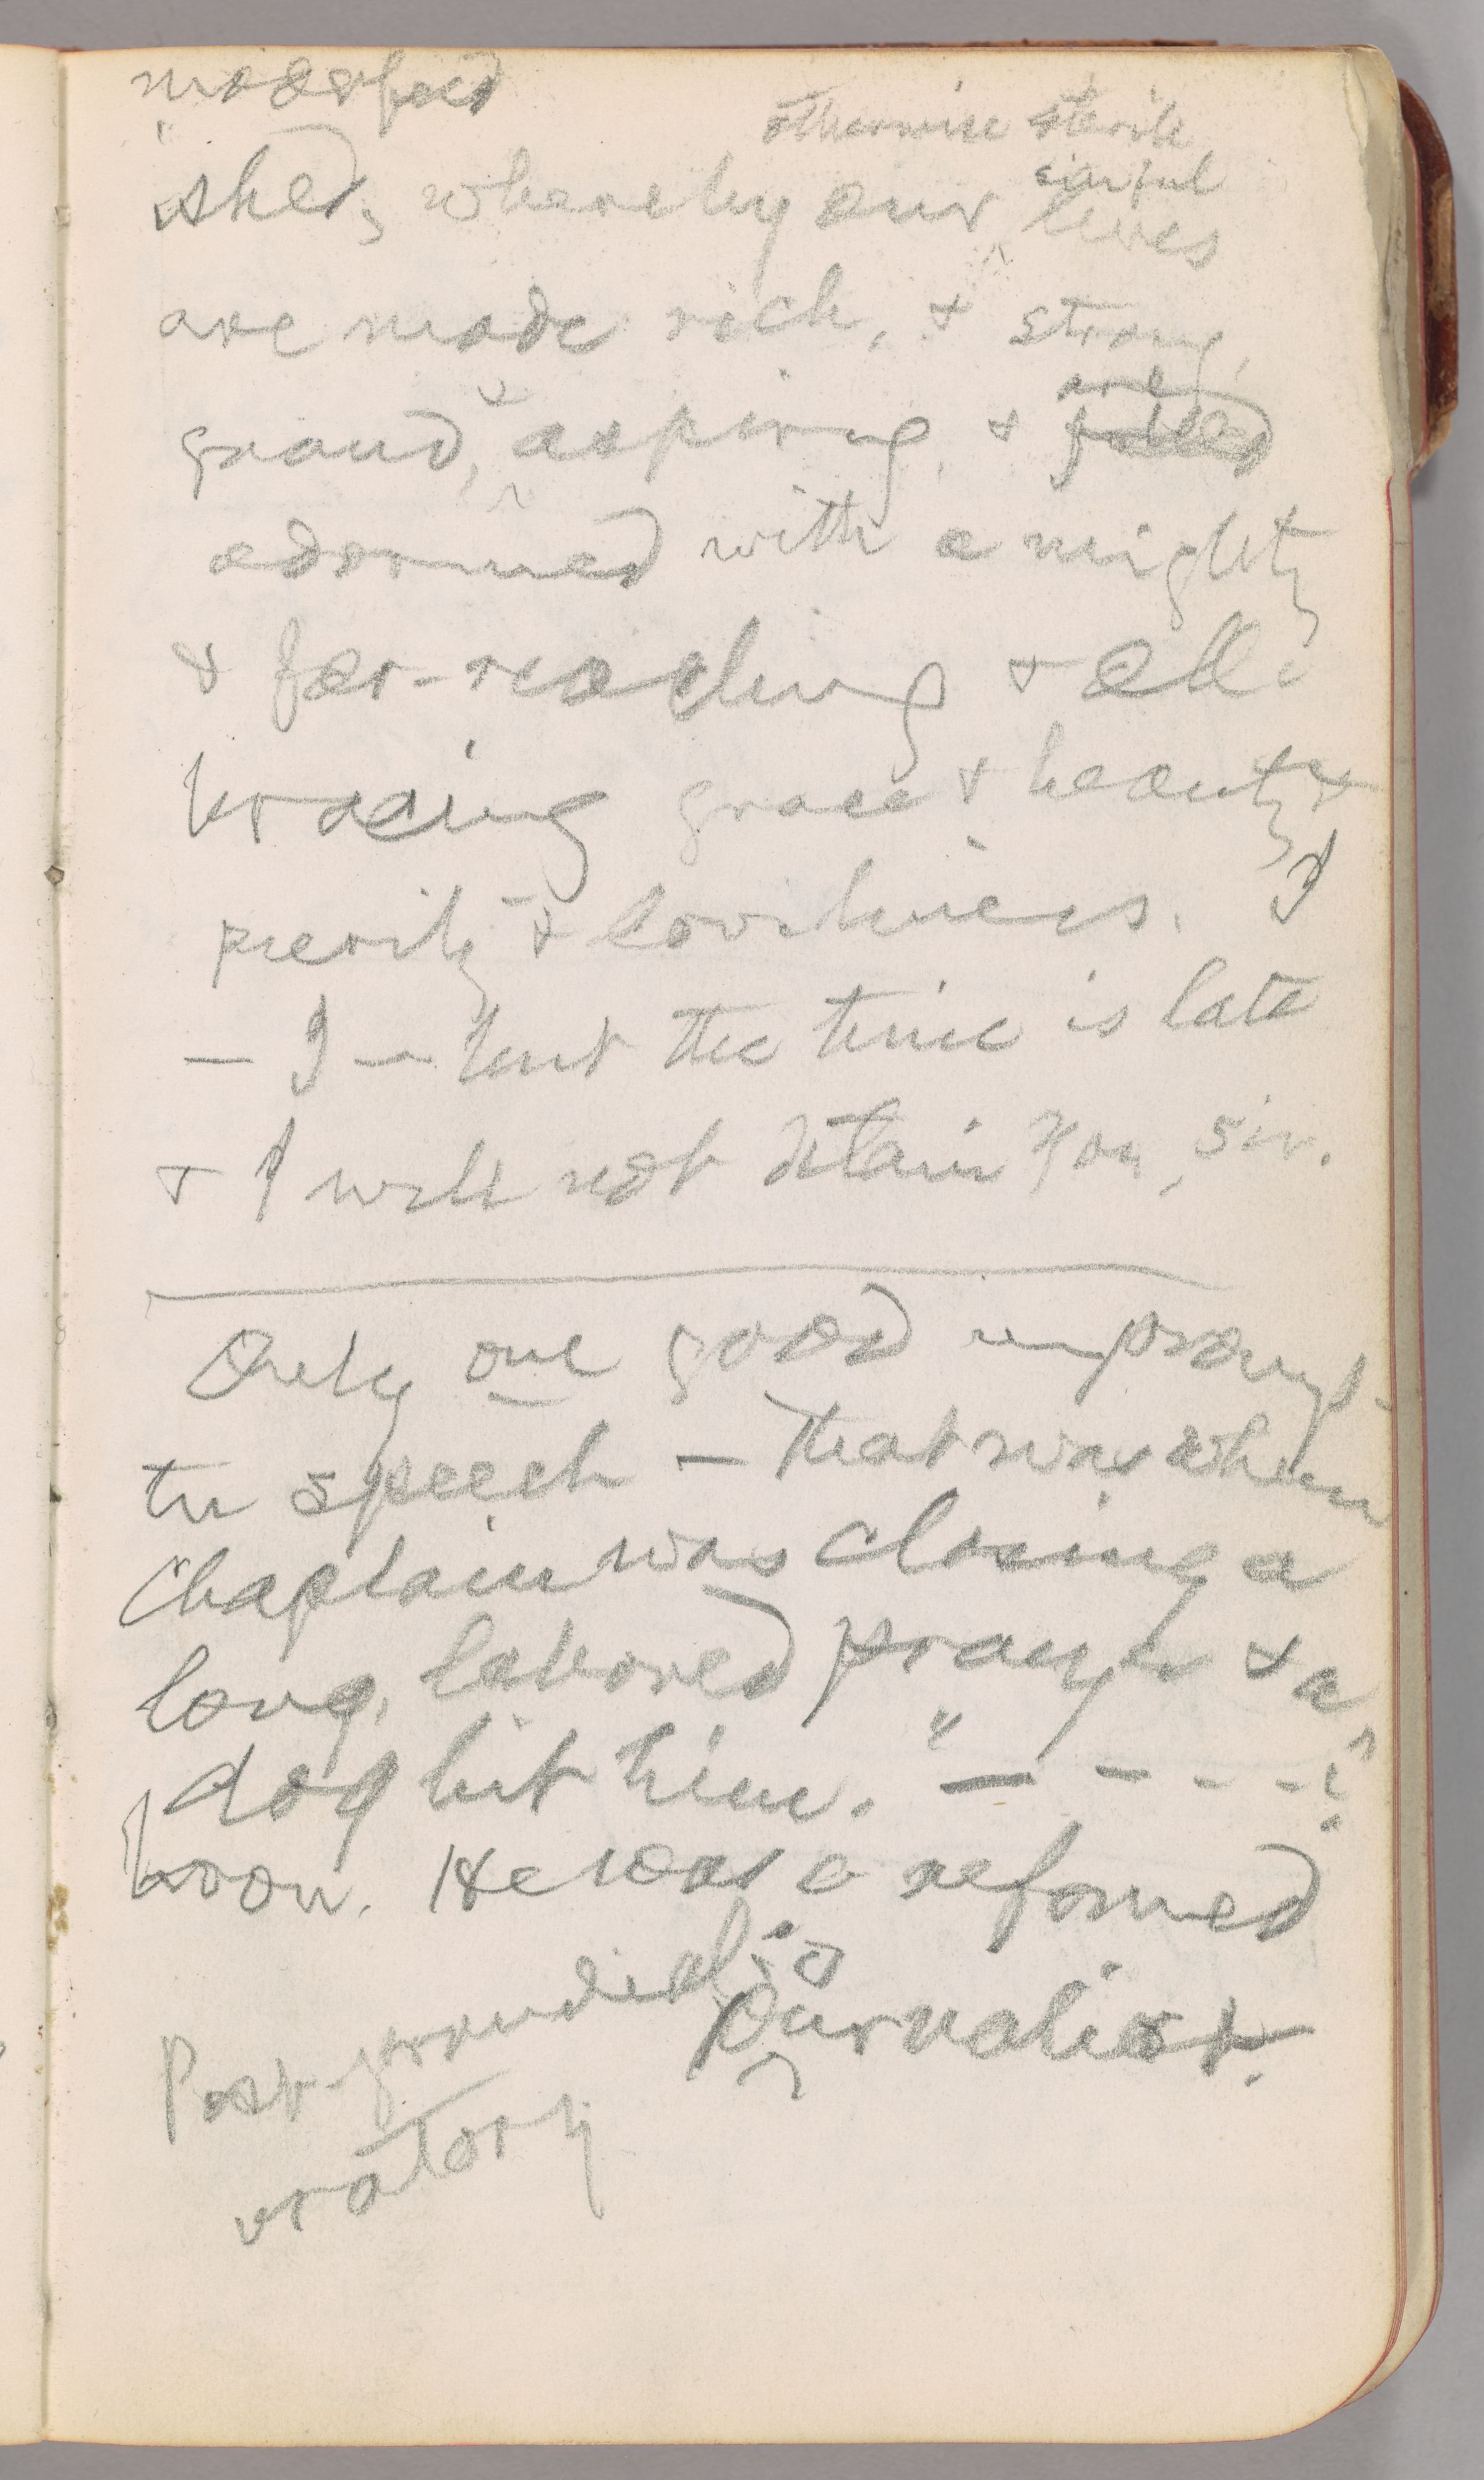 otherwise sterile
sinful
shed, whereby our lives
are made rich, & strong,
grand, & aspiring, & are filled
adorned with a mighty
& far-reaching & all-
bracing grace & beauty &
purity & loveliness. I
— I — but the time is late
& I will not detain you, sir.
Only one good impromp-
tu speech — that was when
Chaplain was closing a
long, labored prayer & a
dog bit him. " — - - - !"
born. He was a reformed
journalist.
Post-prandial
oratory